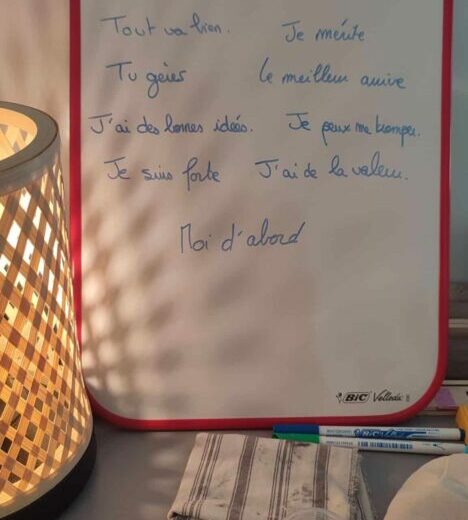 Tout va bien. Je mérite
Tu gères Le meilleur arrive
J'ai des bonnes idées. Je peux me tromper.
Je suis forte J'ai de la valeur.
Moi d'abord
BIC Velleda